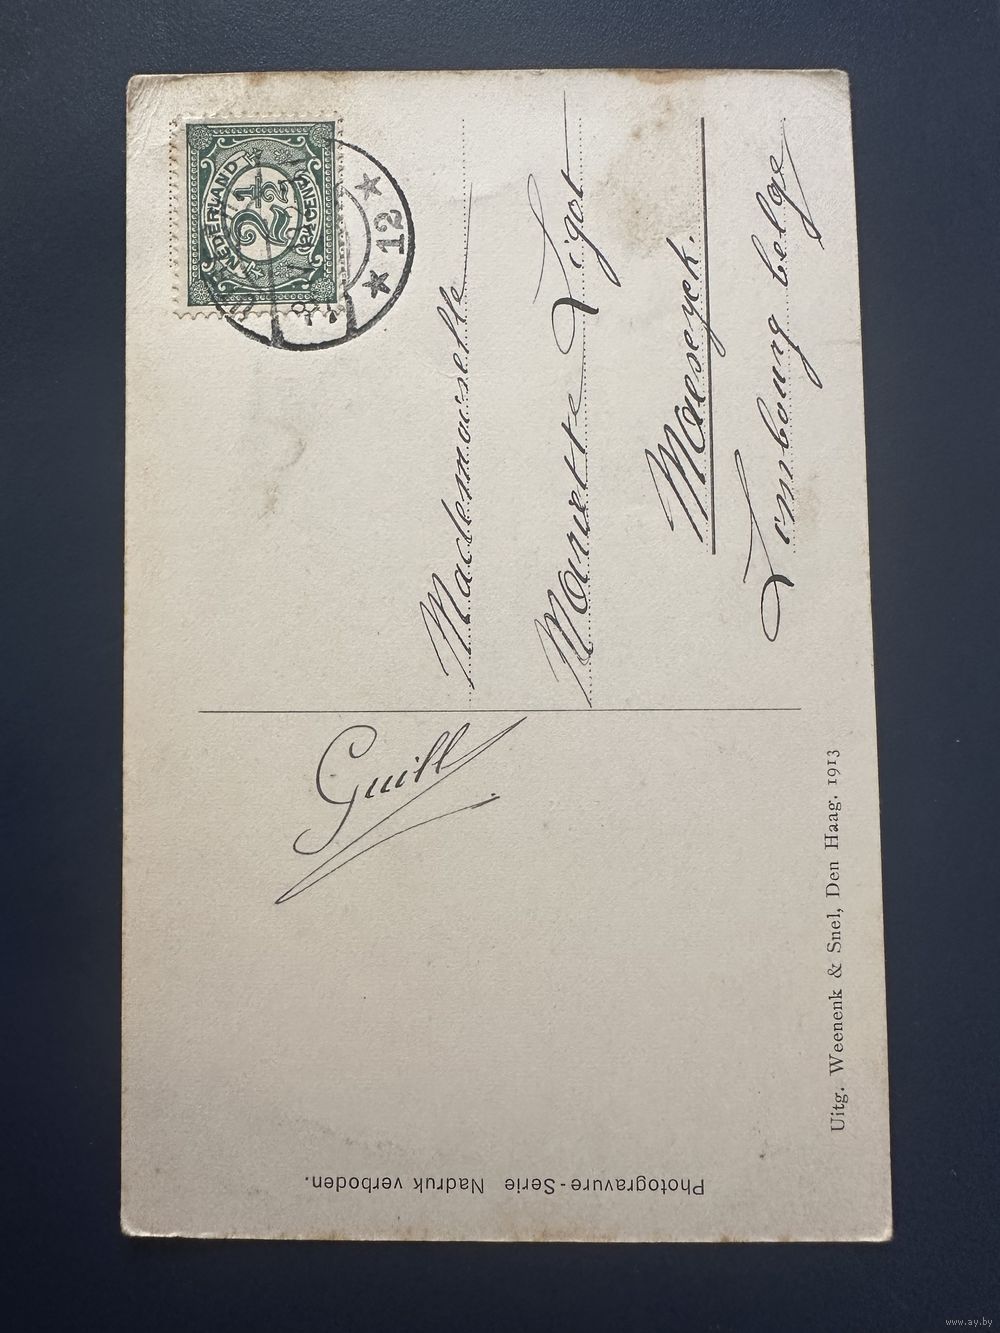 NEDERLAND
2½
CENT
* 12 *
Mademoiselle
Mariette Ligot
Maeseyck.
Limbourg belge
Guill
Uitg. Weenenk & Snel, Den Haag. 1913
Photogravure-Serie Nadruk verboden.
www.ay.by